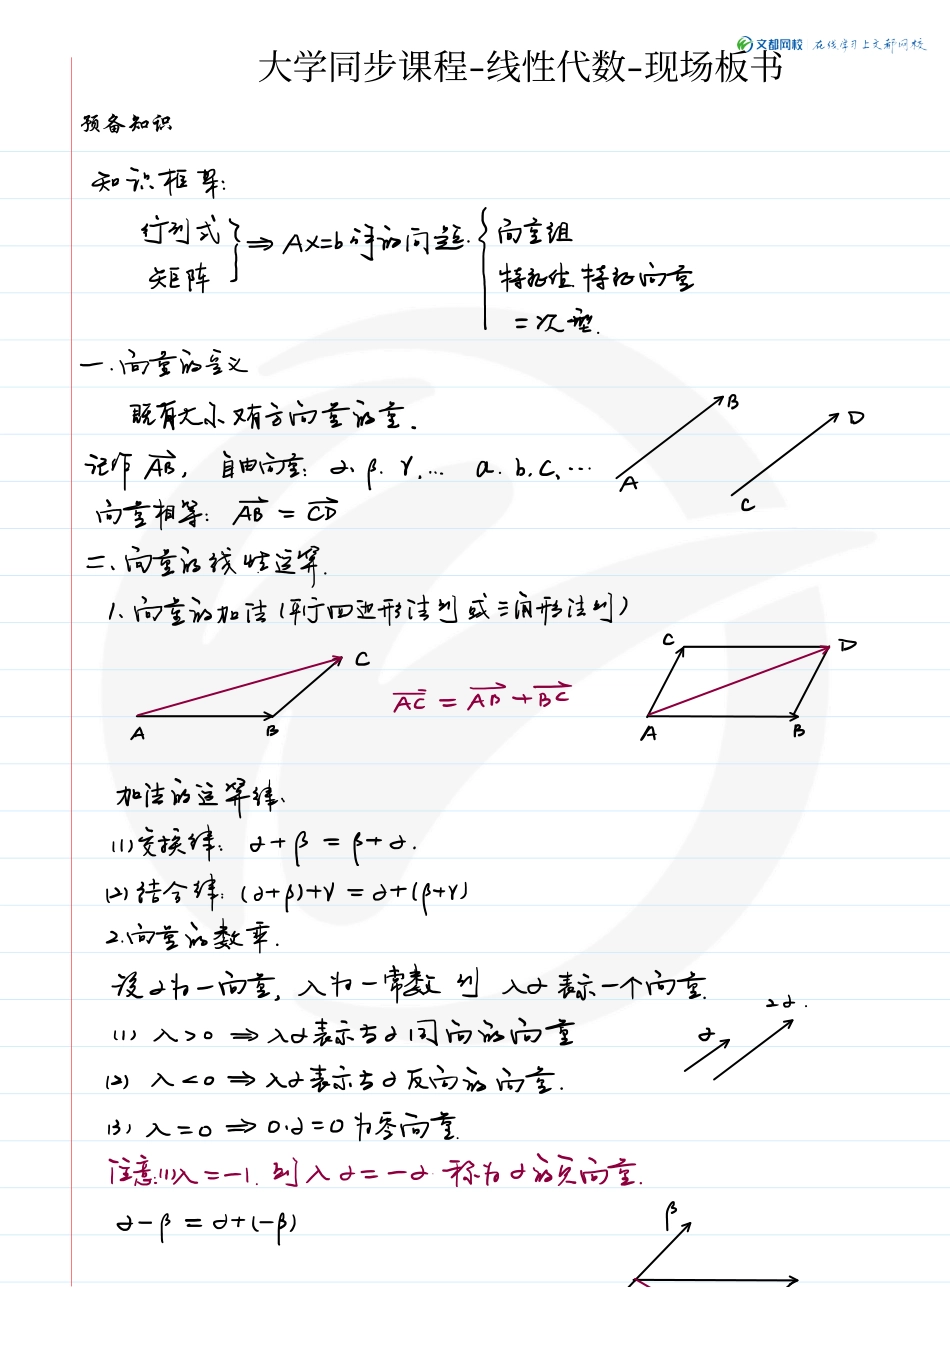 文都网校 在线学习上文都网校
大学同步课程-线性代数-现场板书
预备知识
知识框架:
行列式
矩阵
⇒ AX=b 解的问题.
向量组
特征值.特征向量
二次型.
一.向量的定义
既有大小又有方向量的量.
记作 \overrightarrow{AB}, 自由向量: α. β. γ.... a. b. c、...
向量相等: \overrightarrow{AB} = \overrightarrow{CD}
A B
C D
二、向量的线性运算.
1、向量的加法(平行四边形法则或三角形法则)
A B C
\overrightarrow{AC} = \overrightarrow{AB} + \overrightarrow{BC}
A B C D
加法的运算律、
(1)交换律: α+β = β+α.
(2)结合律: (α+β)+γ = α+(β+γ)
2.向量的数乘.
设α为一向量, λ为一常数 则 λα表示一个向量.
(1) λ>0 ⇒ λα表示与α同向的向量
(2) λ<0 ⇒ λα表示与α反向的向量.
(3) λ=0 ⇒ 0·α=0 为零向量.
α 2α.
注意:(1)λ=-1. 则 λα=-α 称为α的负向量.
α-β = α+(-β)
β